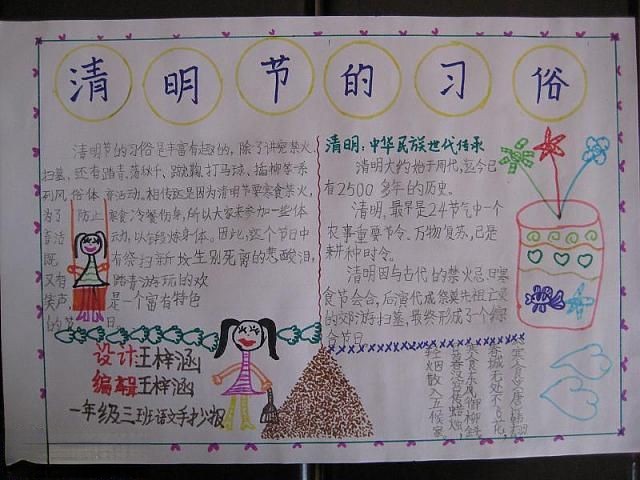 清明节的习俗
清明节的习俗是丰富有趣的，除了讲究禁火
扫墓，还有踏青、荡秋千、蹴鞠、打马球、插柳等一系
列风俗体育活动。相传这是因为清明节要寒食禁火，
为了防止寒食冷餐伤身，所以大家来参加一些体
育活动，以锻炼身体。因此，这个节日中
既有祭扫新坟生别死离的悲酸泪，
又有踏青游玩的欢
笑声，是一个富有特色
的节日。
设计：王梓涵
编辑：王梓涵
一年级三班语文手抄报
清明：中华民族世代传承
清明大约始于周代，迄今已
有2500多年的历史。
清明，最早是24节气中一个
农事重要节令、万物复苏，已是
耕种时令。
清明因与古代的禁火忌日寒
食节会合，后演代成祭奠先祖上文
的郊游扫墓，最终形成了个综
合节日。
寒食
春城无处不飞花，
寒食东风御柳斜。
日暮汉宫传蜡烛，
轻烟散入五侯家